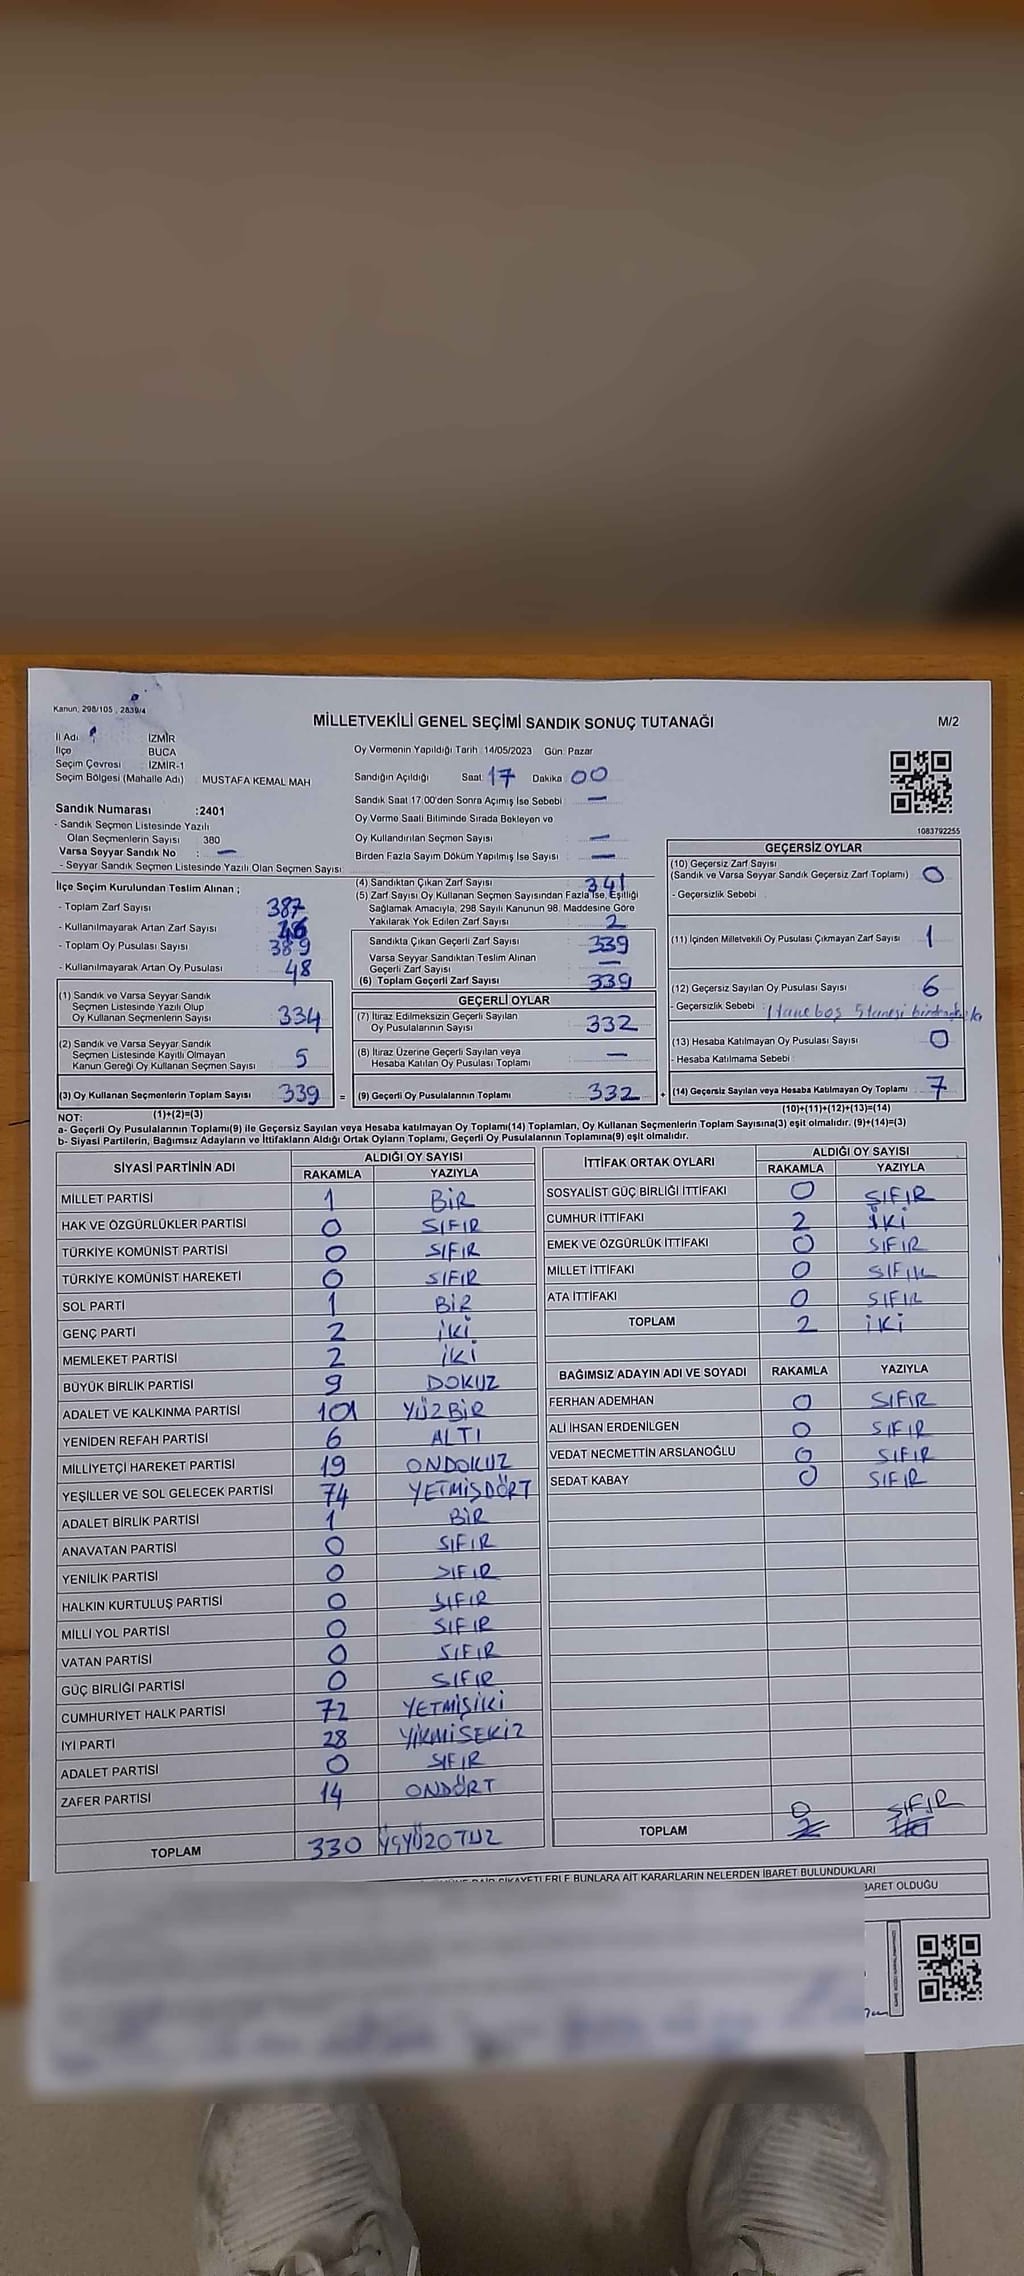 Kanun, 298/105 , 2839/4
MİLLETVEKİLİ GENEL SEÇİMİ SANDIK SONUÇ TUTANAĞI
M/2
İl Adı İZMİR
İlçe BUCA
Seçim Çevresi İZMİR-1
Seçim Bölgesi (Mahalle Adı) MUSTAFA KEMAL MAH
Sandık Numarası :2401
- Sandık Seçmen Listesinde Yazılı
Olan Seçmenlerin Sayısı 380
Varsa Seyyar Sandık No : —
- Seyyar Sandık Seçmen Listesinde Yazılı Olan Seçmen Sayısı
Oy Vermenin Yapıldığı Tarih 14/05/2023 Gün Pazar
Sandığın Açıldığı Saat 17 Dakika 00
Sandık Saat 17.00'den Sonra Açımış İse Sebebi —
Oy Verme Saati Bitiminde Sırada Bekleyen ve
Oy Kullandırılan Seçmen Sayısı —
Birden Fazla Sayım Döküm Yapılmış İse Sayısı : —
1083792255
İlçe Seçim Kurulundan Teslim Alınan ;
- Toplam Zarf Sayısı : 387
- Kullanılmayarak Artan Zarf Sayısı
- Toplam Oy Pusulası Sayısı 389
- Kullanılmayarak Artan Oy Pusulası 48
(1) Sandık ve Varsa Seyyar Sandık
Seçmen Listesinde Yazılı Olup
Oy Kullanan Seçmenlerin Sayısı 334
(2) Sandık ve Varsa Seyyar Sandık
Seçmen Listesinde Kayıtlı Olmayan
Kanun Gereği Oy Kullanan Seçmen Sayısı 5
(3) Oy Kullanan Seçmenlerin Toplam Sayısı 339 =
(4) Sandıktan Çıkan Zarf Sayısı 341
(5) Zarf Sayısı Oy Kullanan Seçmen Sayısından Fazla İse, Eşitliği
Sağlamak Amacıyla, 298 Sayılı Kanunun 98. Maddesine Göre
Yakılarak Yok Edilen Zarf Sayısı 2
Sandıkta Çıkan Geçerli Zarf Sayısı 339
Varsa Seyyar Sandıktan Teslim Alınan
Geçerli Zarf Sayısı —
(6) Toplam Geçerli Zarf Sayısı 339
GEÇERLİ OYLAR
(7) İtiraz Edilmeksizin Geçerli Sayılan
Oy Pusulalarının Sayısı 332
(8) İtiraz Üzerine Geçerli Sayılan veya
Hesaba Katılan Oy Pusulası Toplamı —
(9) Geçerli Oy Pusulalarının Toplamı 332 +
GEÇERSİZ OYLAR
(10) Geçersiz Zarf Sayısı
(Sandık ve Varsa Seyyar Sandık Geçersiz Zarf Toplamı) 0
- Geçersizlik Sebebi
(11) İçinden Milletvekili Oy Pusulası Çıkmayan Zarf Sayısı 1
(12) Geçersiz Sayılan Oy Pusulası Sayısı 6
- Geçersizlik Sebebi : 1 tane boş 5 tanesi
(13) Hesaba Katılmayan Oy Pusulası Sayısı 0
- Hesaba Katılmama Sebebi
(14) Geçersiz Sayılan veya Hesaba Katılmayan Oy Toplamı 7
NOT: (1)+(2)=(3)
(10)+(11)+(12)+(13)=(14)
a- Geçerli Oy Pusulalarının Toplamı(9) ile Geçersiz Sayılan veya Hesaba katılmayan Oy Toplamı(14) Toplamları, Oy Kullanan Seçmenlerin Toplam Sayısına(3) eşit olmalıdır. (9)+(14)=(3)
b- Siyasi Partilerin, Bağımsız Adayların ve İttifakların Aldığı Ortak Oyların Toplamı, Geçerli Oy Pusulalarının Toplamına(9) eşit olmalıdır.
SİYASİ PARTİNİN ADI
ALDIĞI OY SAYISI
RAKAMLA YAZIYLA
MİLLET PARTİSİ 1 BİR
HAK VE ÖZGÜRLÜKLER PARTİSİ 0 SIFIR
TÜRKİYE KOMÜNİST PARTİSİ 0 SIFIR
TÜRKİYE KOMÜNİST HAREKETİ 0 SIFIR
SOL PARTİ 1 BİR
GENÇ PARTİ 2 İKİ
MEMLEKET PARTİSİ 2 İKİ
BÜYÜK BİRLİK PARTİSİ 9 DOKUZ
ADALET VE KALKINMA PARTİSİ 101 YÜZBİR
YENİDEN REFAH PARTİSİ 6 ALTI
MİLLİYETÇİ HAREKET PARTİSİ 19 ONDOKUZ
YEŞİLLER VE SOL GELECEK PARTİSİ 74 YETMİŞDÖRT
ADALET BİRLİK PARTİSİ 1 BİR
ANAVATAN PARTİSİ 0 SIFIR
YENİLİK PARTİSİ 0 SIFIR
HALKIN KURTULUŞ PARTİSİ 0 SIFIR
MİLLİ YOL PARTİSİ 0 SIFIR
VATAN PARTİSİ 0 SIFIR
GÜÇ BİRLİĞİ PARTİSİ 0 SIFIR
CUMHURİYET HALK PARTİSİ 72 YETMİŞİKİ
İYİ PARTİ 28 YİRMİSEKİZ
ADALET PARTİSİ 0 SIFIR
ZAFER PARTİSİ 14 ONDÖRT
TOPLAM 330 ÜÇYÜZOTUZ
İTTİFAK ORTAK OYLARI
ALDIĞI OY SAYISI
RAKAMLA YAZIYLA
SOSYALİST GÜÇ BİRLİĞİ İTTİFAKI 0 SIFIR
CUMHUR İTTİFAKI 2 İKİ
EMEK VE ÖZGÜRLÜK İTTİFAKI 0 SIFIR
MİLLET İTTİFAKI 0 SIFIR
ATA İTTİFAKI 0 SIFIR
TOPLAM 2 İKİ
BAĞIMSIZ ADAYIN ADI VE SOYADI RAKAMLA YAZIYLA
FERHAN ADEMHAN 0 SIFIR
ALİ İHSAN ERDENİLGEN 0 SIFIR
VEDAT NECMETTİN ARSLANOĞLU 0 SIFIR
SEDAT KABAY 0 SIFIR
TOPLAM 0 SIFIR
ŞİKAYETLERLE BUNLARA AİT KARARLARIN NELERDEN İBARET BULUNDUKLARI
BARET OLDUĞU